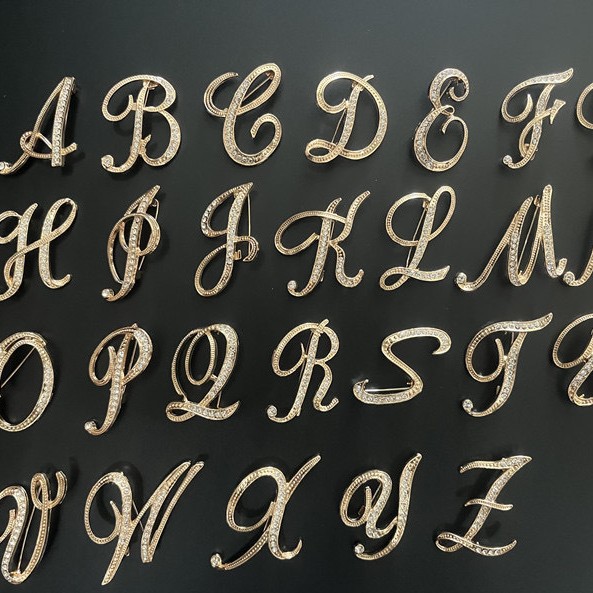 A B C D E F
H I J K L M
O P Q R S T U
V W X Y Z